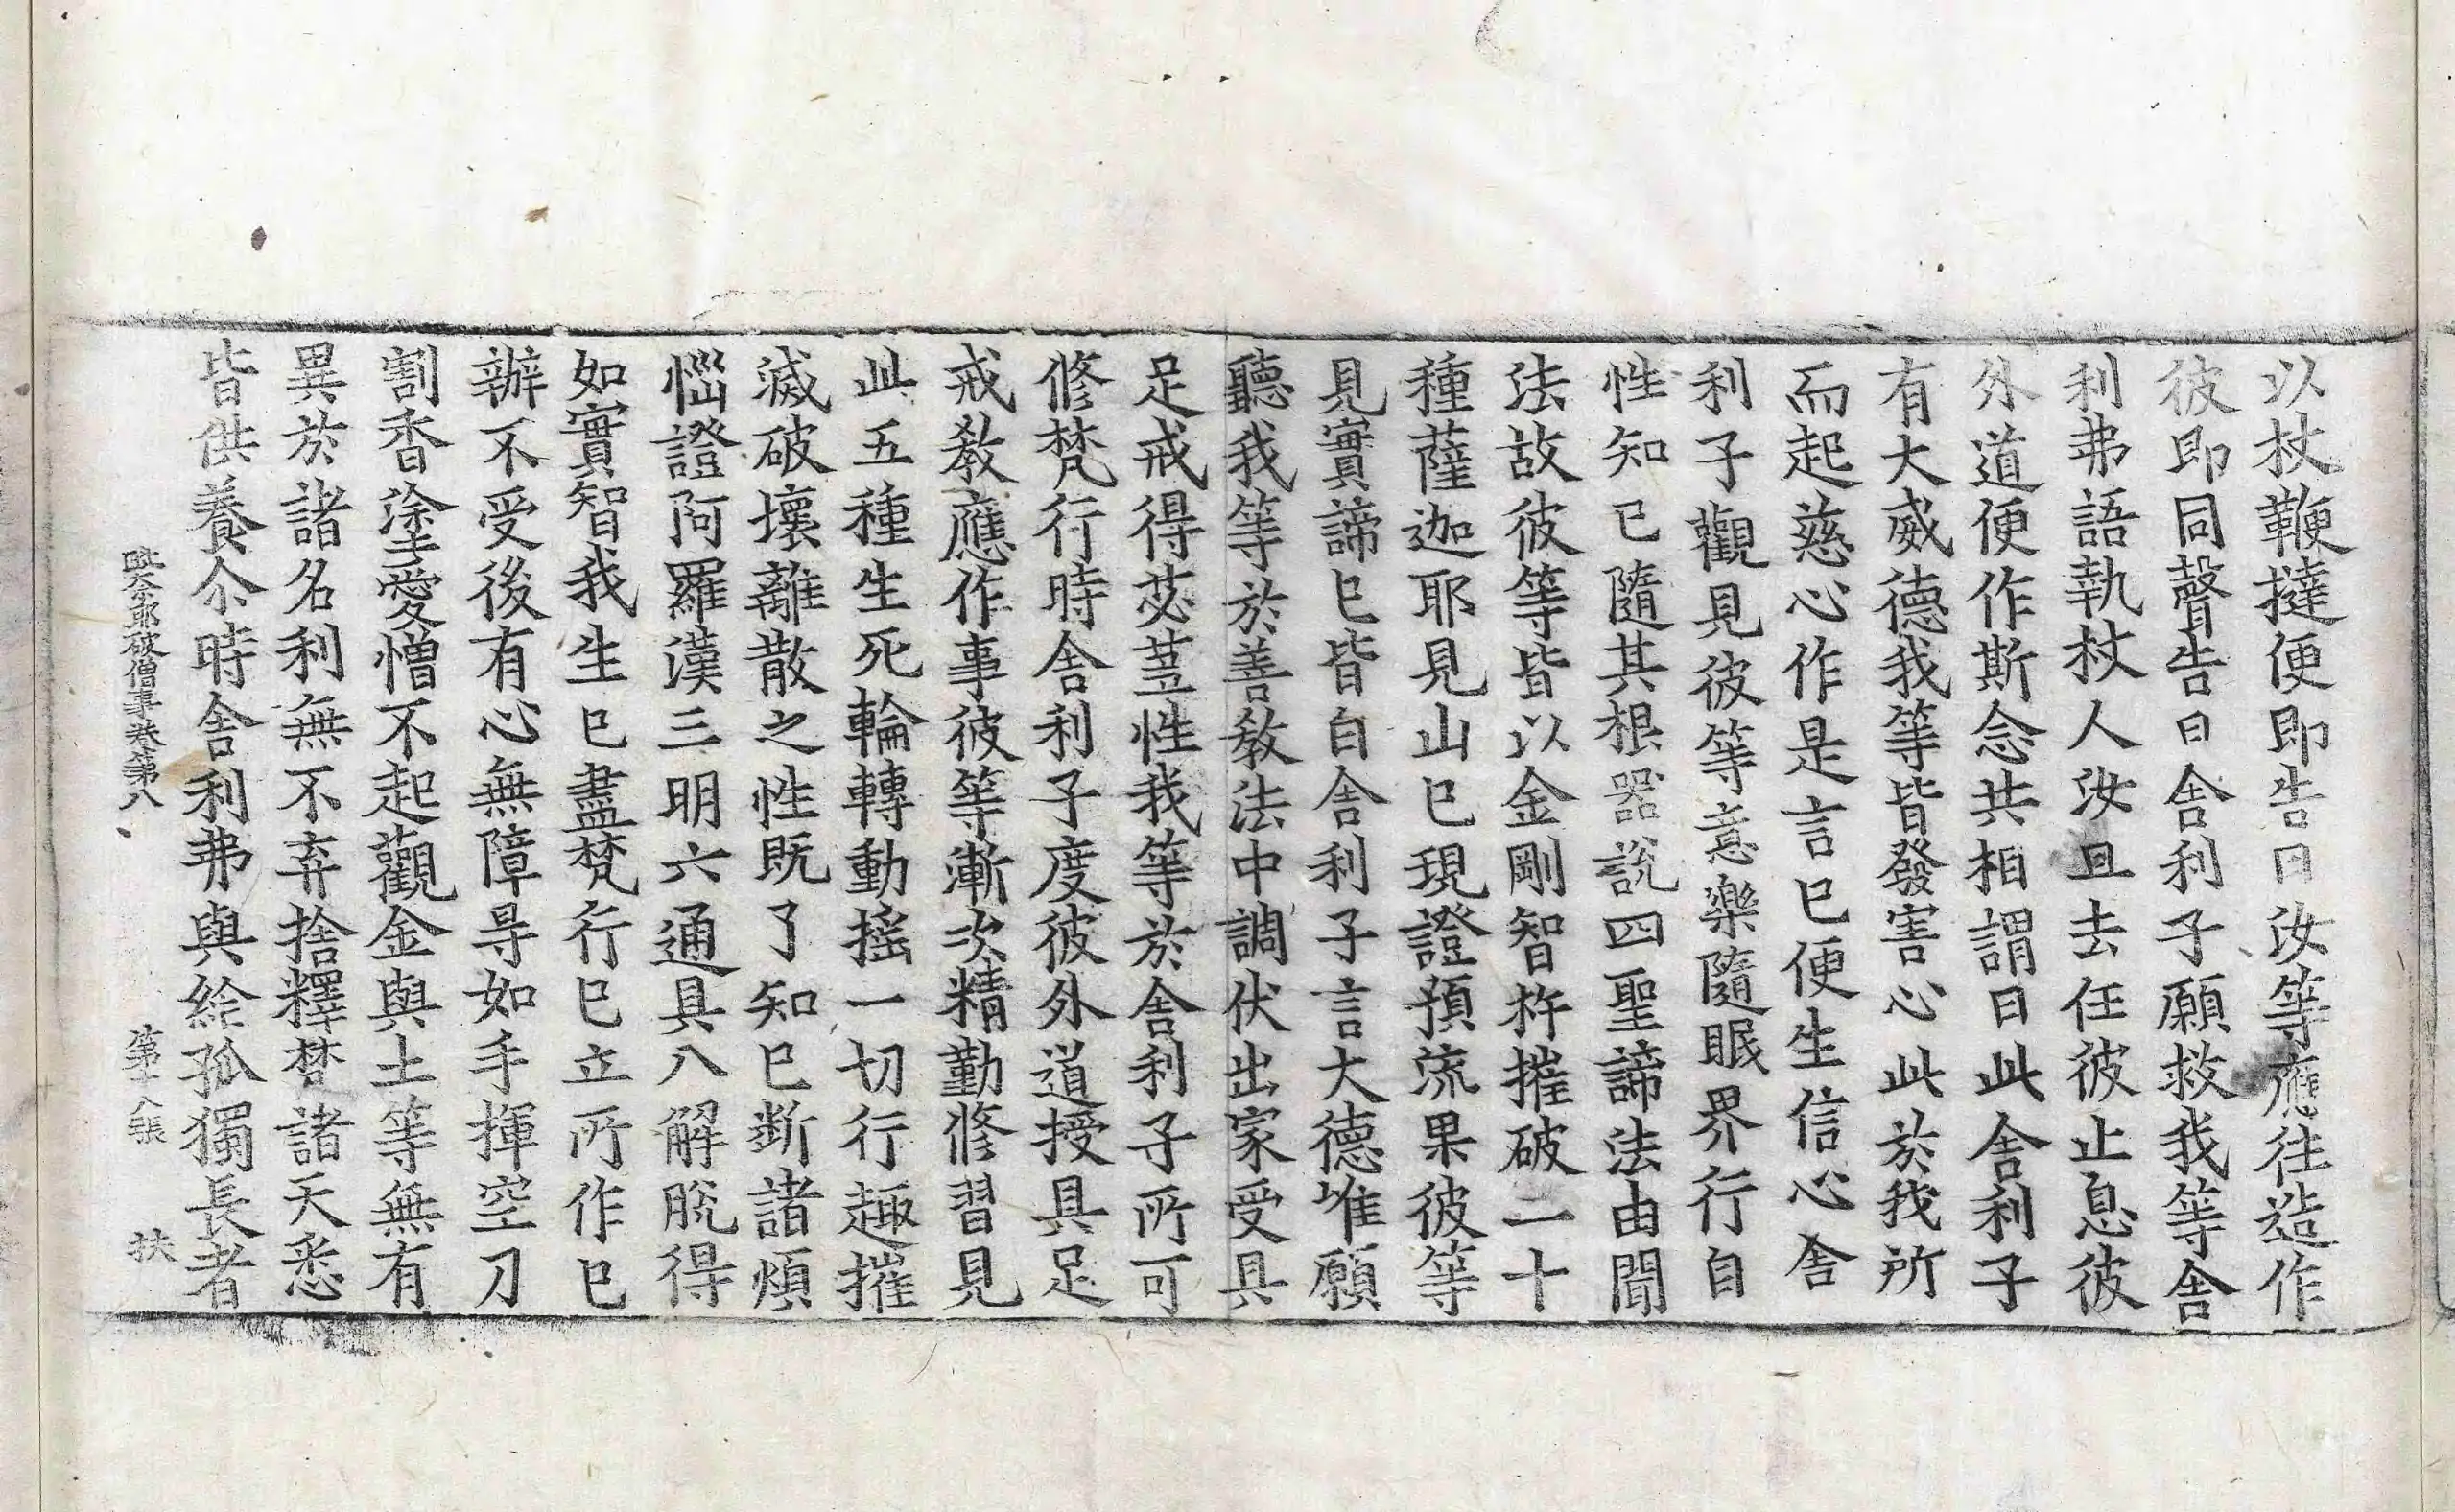 以杖鞭撻便即告曰汝等應往造作
彼即同聲告曰舍利子願救我等舍
利弗語執杖人汝且去任彼止息彼
外道便作斯念共相謂曰此舍利子
有大威德我等皆發害心此於我所
而起慈心作是言已便生信心舍
利子觀見彼等意樂隨眠界行自
性知已隨其根器說四聖諦法由聞
法故彼等皆以金剛智杵摧破二十
種薩迦耶見山已現證預流果彼等
見實諦已皆白舍利子言大德唯願
聽我等於善教法中調伏出家受具
足戒得苾芻性我等於舍利子所可
修梵行時舍利子度彼外道授具足
戒教應作事彼等漸次精勤修習見
此五種生死輪轉動搖一切行趣摧
滅破壞離散之性既了知已斷諸煩
惱證阿羅漢三明六通具八解脫得
如實智我生已盡梵行已立所作已
辦不受後有心無障㝵如手揮空刀
割香塗愛憎不起觀金與土等無有
異於諸名利無不弃捨釋梵諸天悉
皆供養尒時舍利弗與給孤獨長者
毗奈耶破僧事卷第八 第十八張 扶